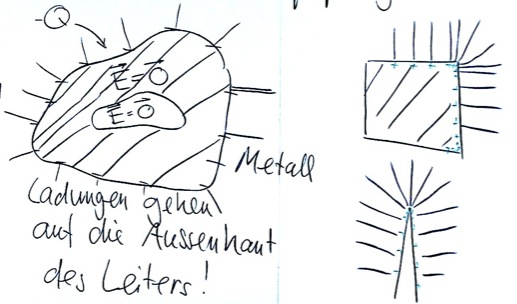 -Q
E=O
E=O
Metall
Ladungen gehen
auf die Aussenhaut
des Leiters!